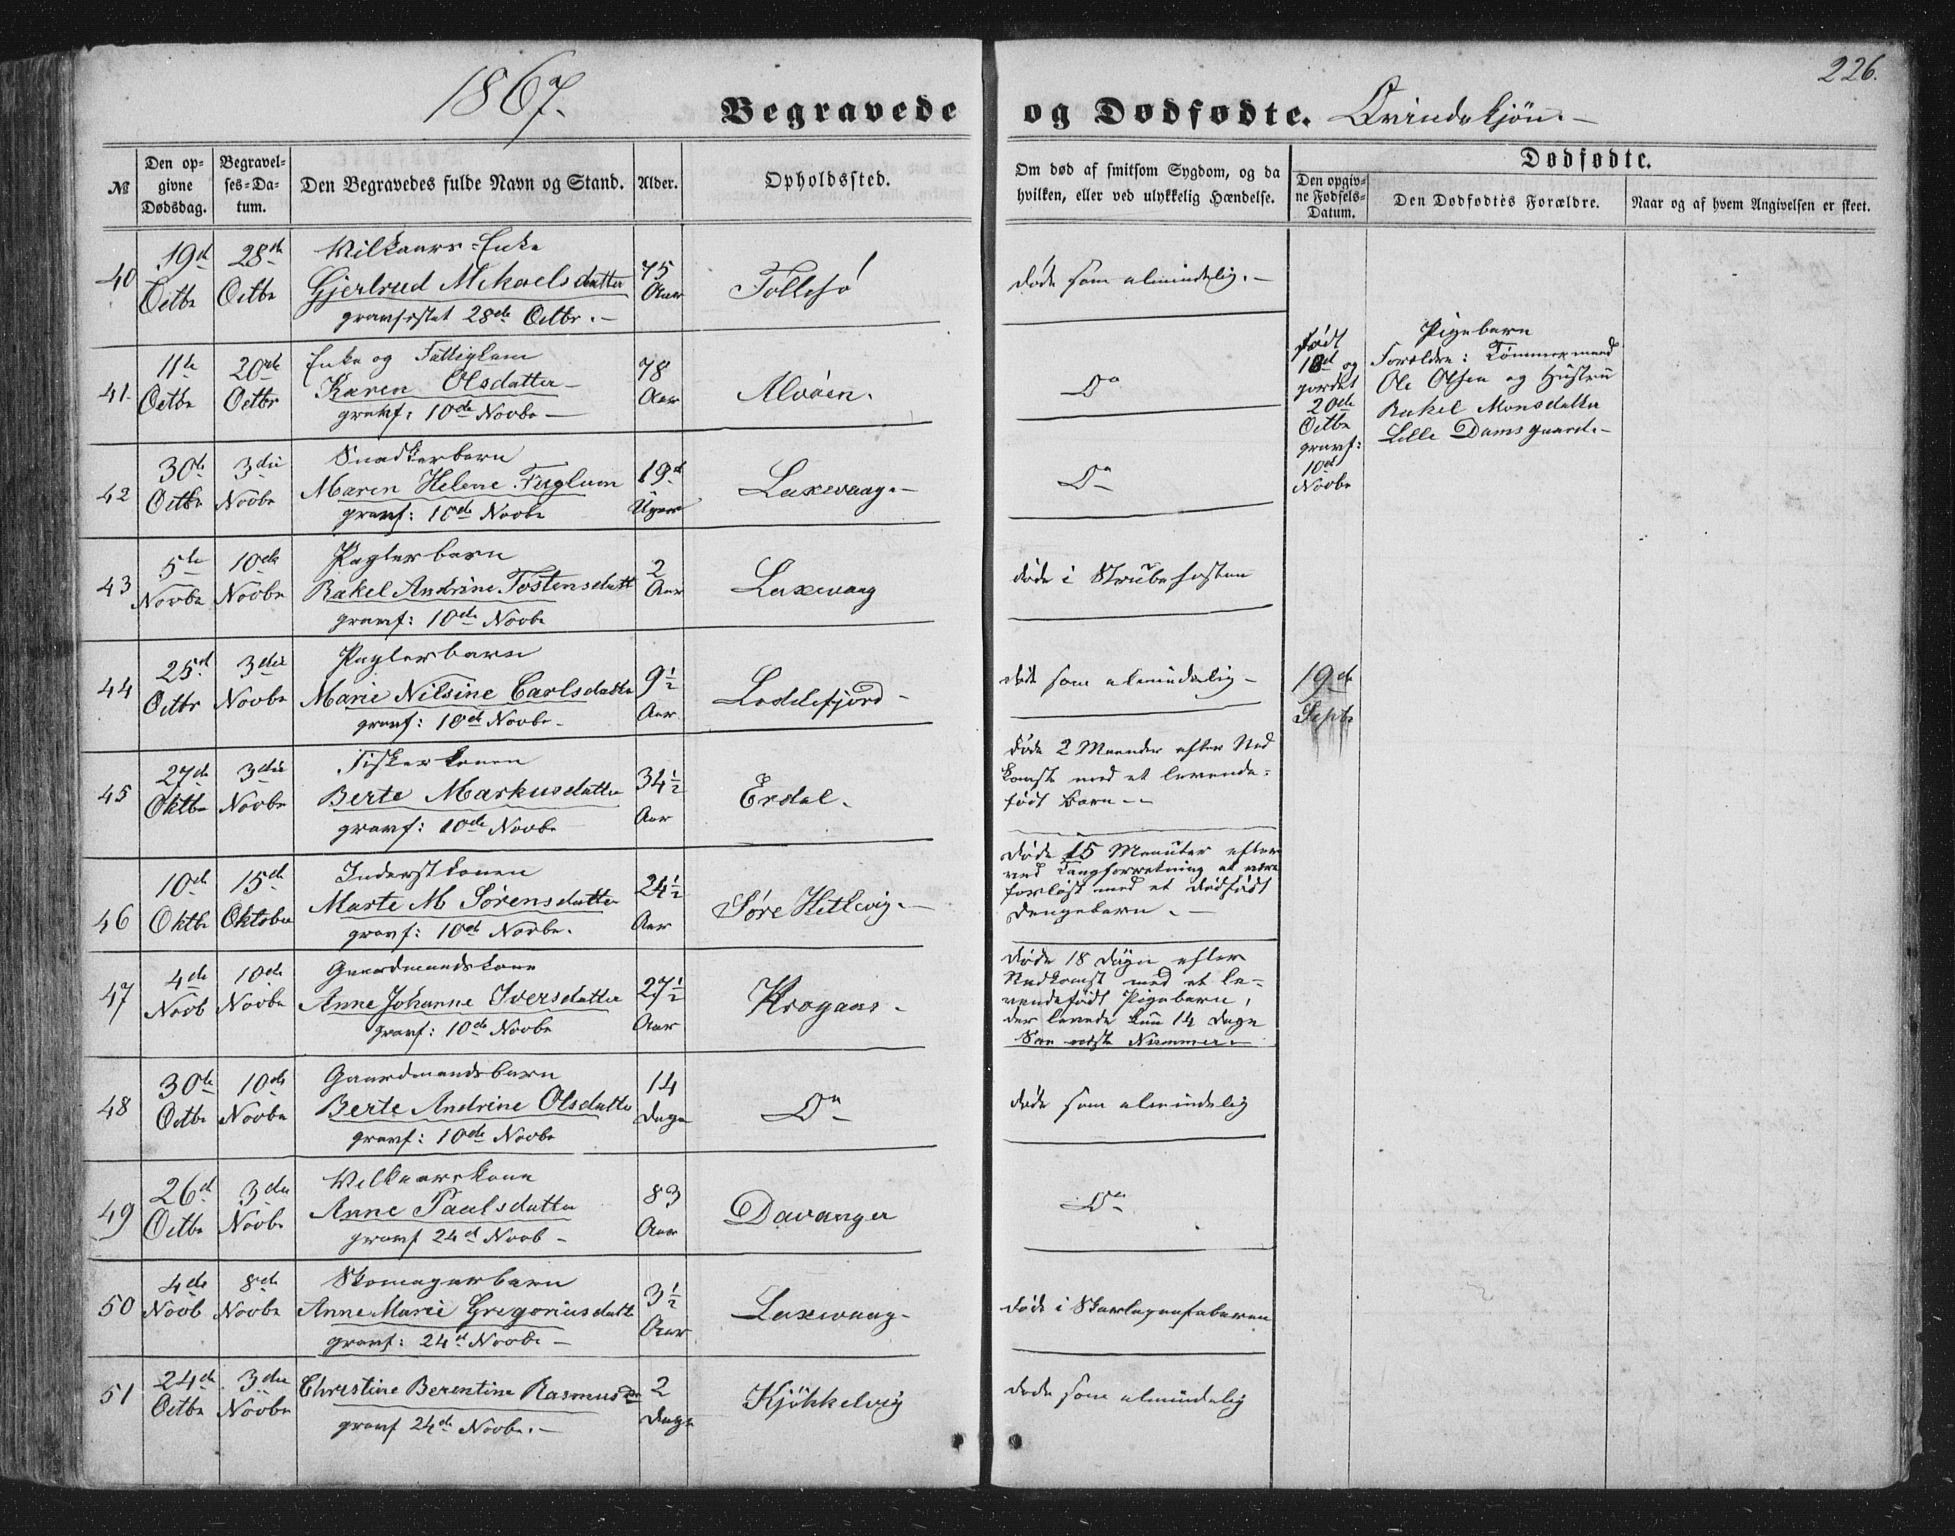 1867.
226.
Begravede og Dødfødte. Qvindekjøn.
№
Den opgivne Dødsdag.
Begravelses-Datum.
Den Begravedes fulde Navn og Stand.
Alder.
Opholdssted.
Om død af smitsom Sygdom, og da hvilken, eller ved ulykkelig Hændelse.
Dødfødte.
Den opgivne Fødsels-Datum.
Den Dødfødtes Forældre.
Naar og af hvem Angivelsen er skeet.
40 19d Octbr 28de Octbr Vilkaars-Enke
Gjertrud Mikaelsdatter
gravfestet 28de Octbr.
75 Aar
Follesø
døde som almindelig.
41. 11te Octbr 20de Octbr Enke og Fattiglem
Karen Olsdatter
gravf: 10de Novbr
78 Aar
Alvøen.
Do
42 30de Octbr 3die Novbr Snedkerbarn
Maren Helene Fuglum
gravf: 10de Novbr
19 Uger
Laxevaag
Do
43 5te Novbr 10de Novbr Paglerbarn
Rakel Andrine Tostensdatt
gravf: 10de Novbr
2 Aar
Laxevaag
døde i Strubehosten
44 25d Octbr 3die Novbr Paglerbarn
Marie Nilsine Carlsdatter
gravf: 10de Novbr
9½ Aar
Loddefjord
døde som almindelig
45 27de Oktbr 3die Novbr Fiskerkonen
Berte Markusdatter
gravf: 10de Novbr
34½ Aar
Erdal.
døde 2 Maaneder efter Ned
komst med et levende
født Barn
46 10de Oktbr 15de Oktober Inderstkonen
Marte M Sørensdatter
gravf: 10de Novbr.
24½ Aar
Søre Hetlevig.
døde 15 Menuter efter
ved Tangforretning at være
forløst med et dødfødt
Drengebarn.
47 4de Novb 10de Novbr Gaardmandskone
Anne Johanne Iversdatter
gravf: 10de Novbr
27½ Aar
Krogaas.
døde 18 Døgn efter
Nedkomst med et le-
vendefødt Pigebarn,
der levede kun 14 Dage
See næste Nummer.
48 30de Octbr 10de Novbr Gaardmandsbarn
Berte Andrine Olsdatter
gravf: 10de Novbr
14 Dage
Do
døde som almindelig
49 26d Octbr 3die Novbr Vilkaarskone
Anne Paulsdatter
gravf 24d Novb
83 Aar
Davanger
Do
50 4de Novb 8de Novbr Skomagerbarn
Anne Marie Gregoriusdatt
gravf: 24d Novbr
3½ Aar
Laxevaag
døde i Skarlagensfeberen
51 24de Octbr 3die Novbr Christine Berentine Rasmusdr
gravf 24de Novbr.
2 Dage
Kjøkkelvig
døde som almindelig
født
18d og
jordet
20de
Octbr
gravf:
10d
Novbr
Pigebarn
Forældre: Tømmermand
Ole Olsen og Hustru
Rakel Monsdatter
Lille Damsgaard.
19de
Septbr